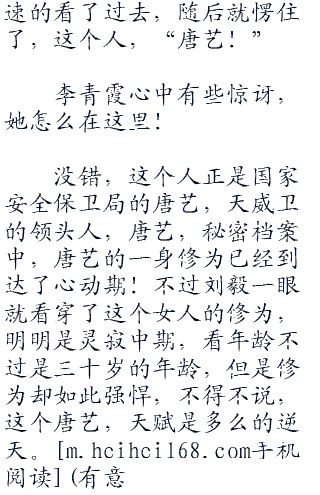 速的看了过去，随后就愣住
了，这个人，“唐艺！”
李青霞心中有些惊讶，
她怎么在这里！
没错，这个人正是国家
安全保卫局的唐艺，天威卫
的领头人，唐艺，秘密档案
中，唐艺的一身修为已经到
达了心动期！不过刘毅一眼
就看穿了这个女人的修为，
明明是灵寂中期，看年龄不
过是三十岁的年龄，但是修
为却如此强悍，不得不说，
这个唐艺，天赋是多么的逆
天。[m.hcihcil68.com手机
阅读](有意